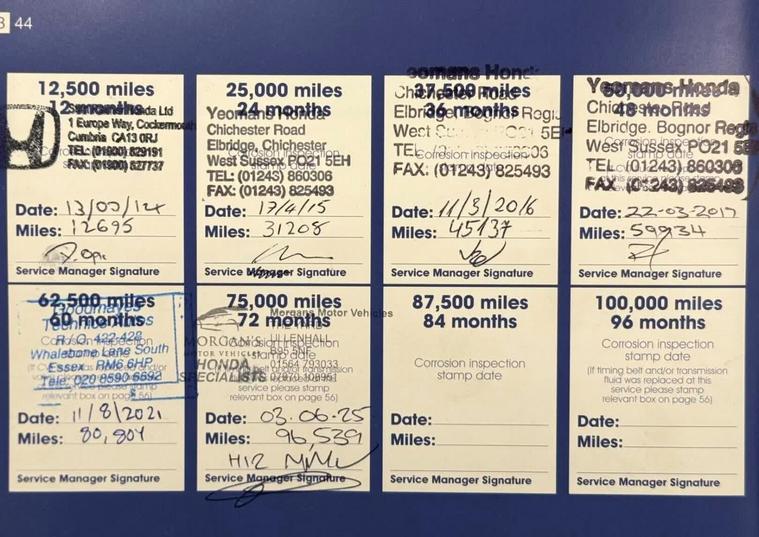 44
12,500 miles
12 months
Honda Ltd
1 Europe Way, Cockermouth
Cumbria CA13 0RJ
TEL: (01900) 829191
FAX: (01900) 827737
Date: 13/03/14
Miles: 12695
Service Manager Signature
25,000 miles
24 months
Yeomans Honda
Chichester Road
Elbridge, Chichester
West Sussex PO21 5EH
TEL: (01243) 860306
FAX: (01243) 825493
Date: 17/4/15
Miles: 31208
Service Manager Signature
Yeomans Honda
37,500 miles
Chichester Road
36 months
Elbridge, Bognor Regis
West Sussex PO21 5EH
Corrosion inspection
stamp date
FAX: (01243) 825493
Date: 11/3/2016
Miles: 45137
Service Manager Signature
Yeomans Honda
50,000 miles
Chichester Road
48 months
Elbridge. Bognor Regis
West Sussex PO21 5EH
TEL (01243) 860306
FAX (01243) 825493
Date: 22-03-2017
Miles: 59934
Service Manager Signature
62,500 miles
60 months
R/O 422-428
Whalebone Lane South
Essex RM6 6HP
Tele: 020 8590 6692
relevant box on page 56)
Date: 11/8/2021
Miles: 80,804
Service Manager Signature
75,000 miles
Morgans Motor Vehicles
72 months
MORGAN'S
ULLENHALL
MOTOR VEHICLES
B95 5NF
01564 793033
HONDA
SPECIALISTS
relevant box on page 56)
Date: 03.06.25
Miles: 96,539
Service Manager Signature
87,500 miles
84 months
Corrosion inspection
stamp date
Date:
Miles:
Service Manager Signature
100,000 miles
96 months
Corrosion inspection
stamp date
(If timing belt and/or transmission
fluid was replaced at this
service please stamp
relevant box on page 56)
Date:
Miles:
Service Manager Signature